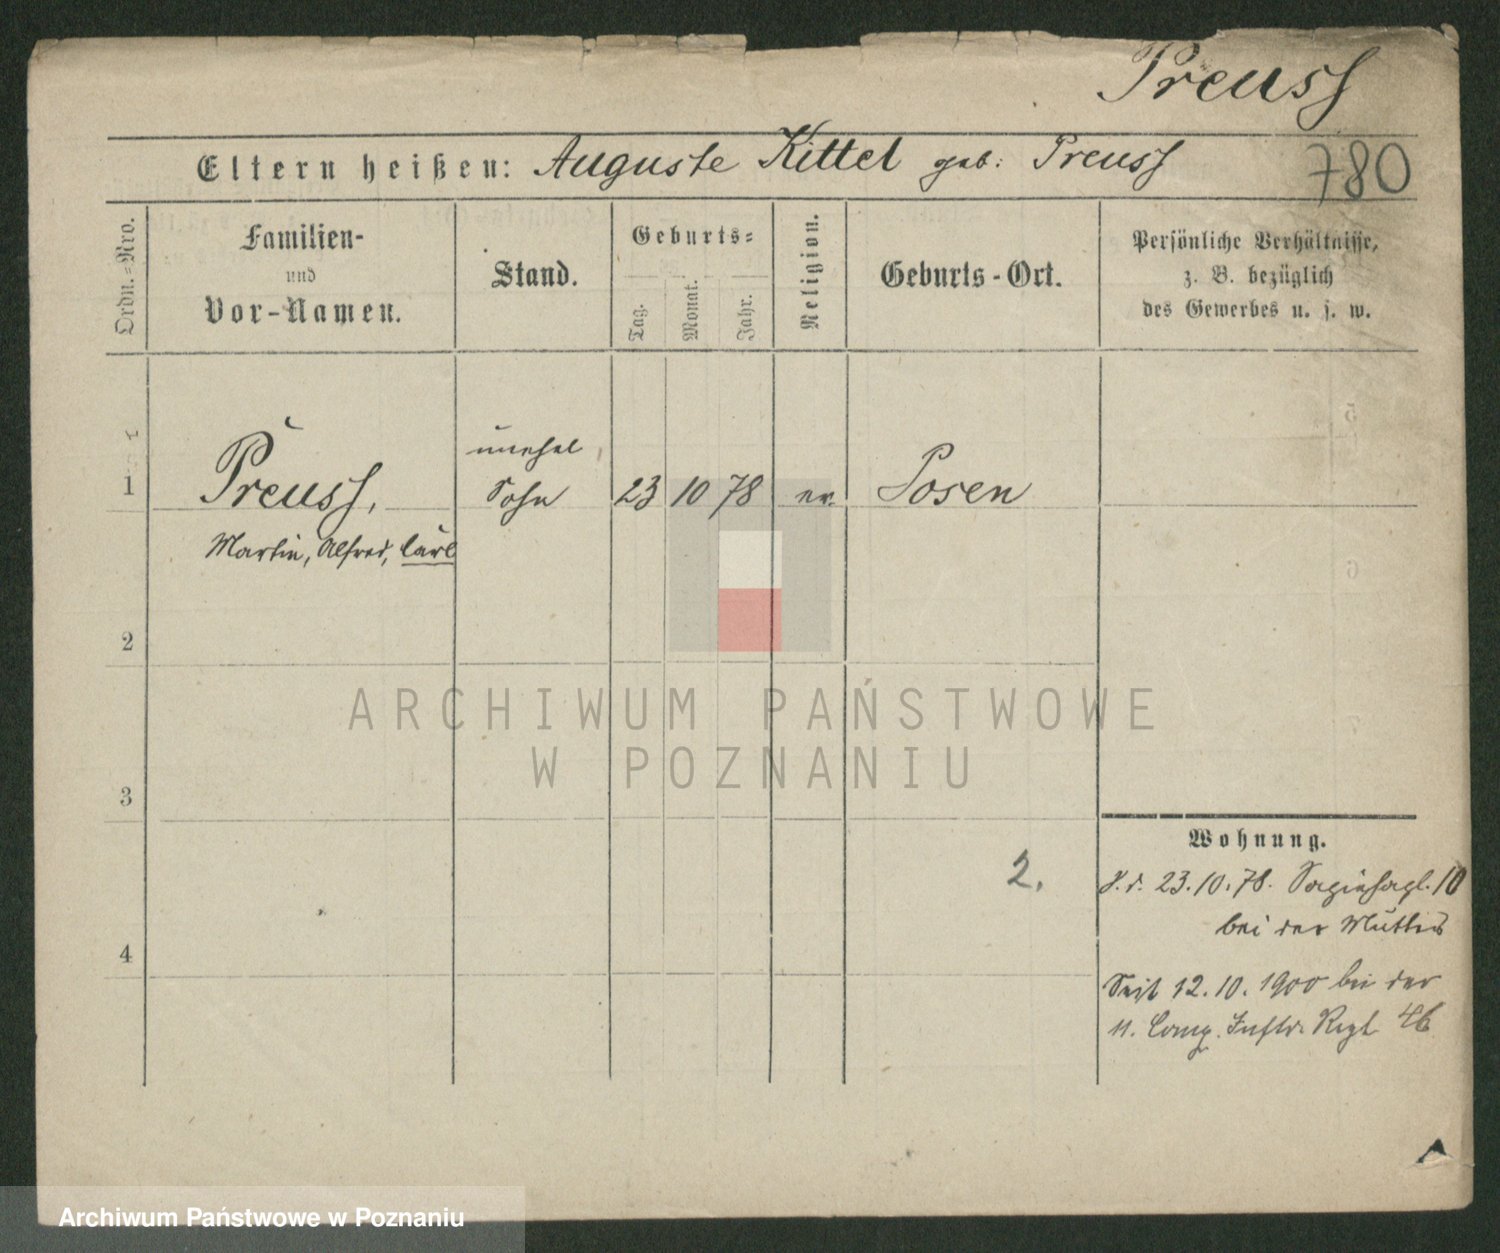 Preuss
Eltern heißen: Auguste Kittel geb: Preuss
780
Ordn.-Nro.
Familien-
und
Vor-Namen.
Stand.
Geburts-
Tag.
Monat.
Jahr.
Religion.
Geburts-Ort.
Persönliche Verhältnisse,
z. B. bezüglich
des Gewerbes u. s. w.
1
Preuss,
Martin, Alfred, Carl
unehel
Sohn
23 10 78
ev.
Posen
2
3
4
2.
Wohnung.
23.10.78. 10
bei der Mutter
Seit 12.10.1900 bei der
11. Comp. Inftr. Regt 46
ARCHIWUM PAŃSTWOWE
W POZNANIU
Archiwum Państwowe w Poznaniu